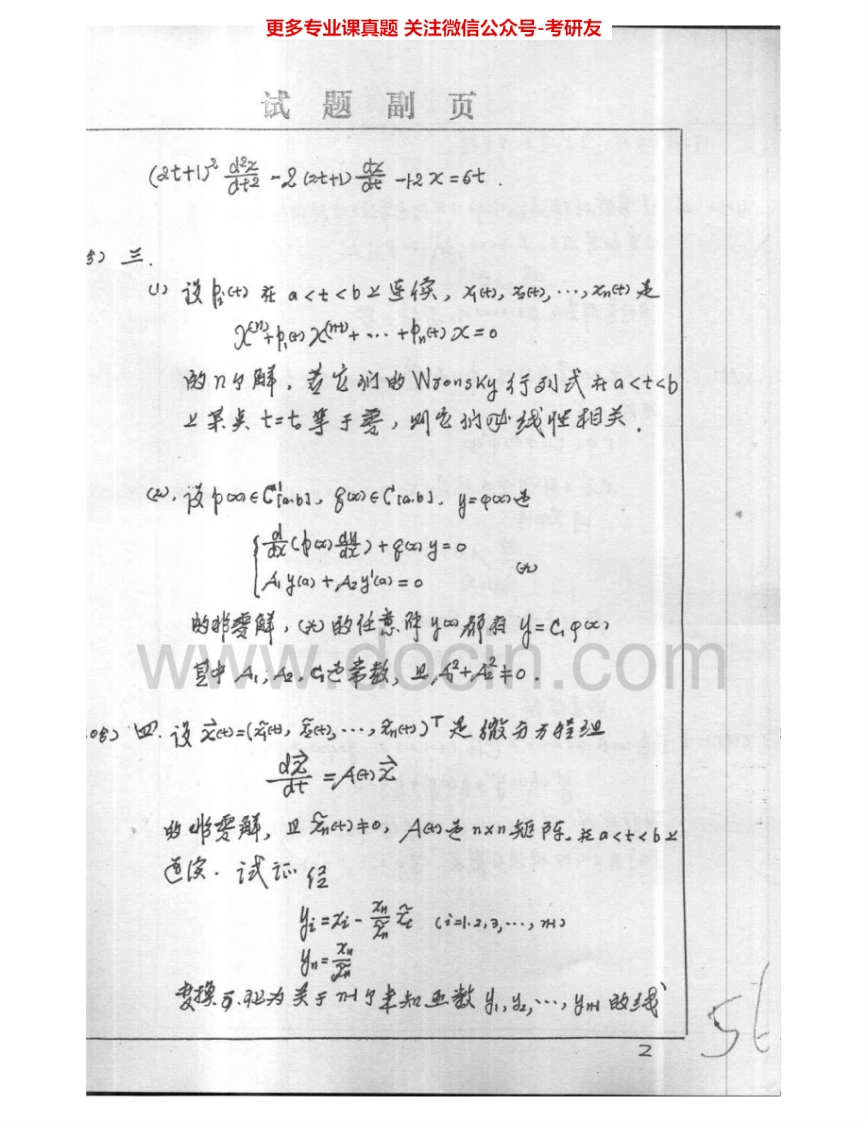 更多专业课真题 关注微信公众号-考研友
试 题 副 页
(2t+1)² d²x/dt² - 2(2t+1) dx/dt - 12x = 6t.
分) 三.
(1) 设 pᵢ(t) 在 a<t<b 上连续, x₁(t), x₂(t), ⋯, xₙ(t) 是
x⁽ⁿ⁾+p₁(t)x⁽ⁿ⁻¹⁾+⋯+pₙ(t)x=0
的n个解, 若它们的Wronsky行列式在a<t<b
上某点 t=t₀ 等于零, 则它们必线性相关.
(2). 设 p(x)∈C¹[a.b], q(x)∈C[a.b]. y=φ(x)是
d/dx(p(x)dy/dx)+q(x)y=0
A₁y(a)+A₂y'(a)=0 (*)
的非零解, (*)的任意解y(x)都有 y=C₁φ(x)
其中 A₁, A₂, C₁是常数, 且A₁²+A₂²≠0.
www.docin.com
0分) 四. 设 x̃(t)=(x̃₁(t), x̃₂(t), ⋯, x̃ₙ(t))ᵀ 是微分方程组
dx⃗/dt = A(t)x⃗
的非零解, 且 x̃ₙ(t)≠0, A(t)是n×n矩阵. 在a<t<b上
连续. 试证 经
yᵢ=xᵢ-xₙ/x̃ₙ x̃ᵢ (i=1.2,3,⋯, n-1)
yₙ=xₙ/x̃ₙ
变换可化为关于n-1个未知函数 y₁, y₂, ⋯, yₙ₋₁ 的线
2